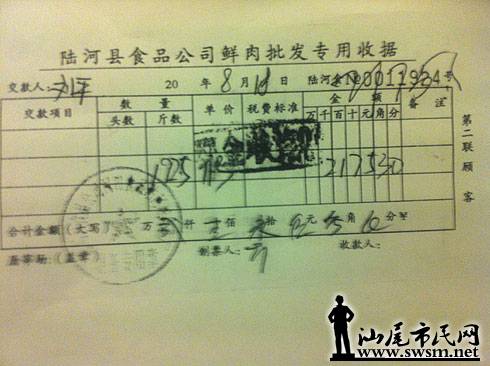 陆河县食品公司鲜肉批发专用收据
交款人：刘平 20 年8月18日 陆河食№0011934号
交款项目 数量 单价 税费标准 金额 备注
头数 斤数 万千百十元角分
192.5 11.3 217530
合计金额（大写） 万 仟 佰 拾 伍元叁角 分￥
（盖章） 制票人： 收款人：
第二联 顾客
汕尾市民网
www.swsm.net